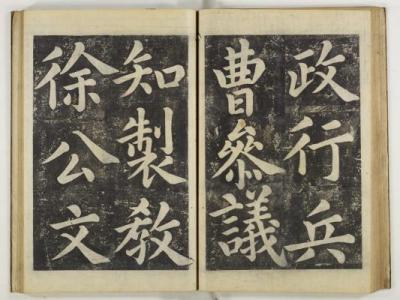 政行兵
曹叅議
知製教
徐公文